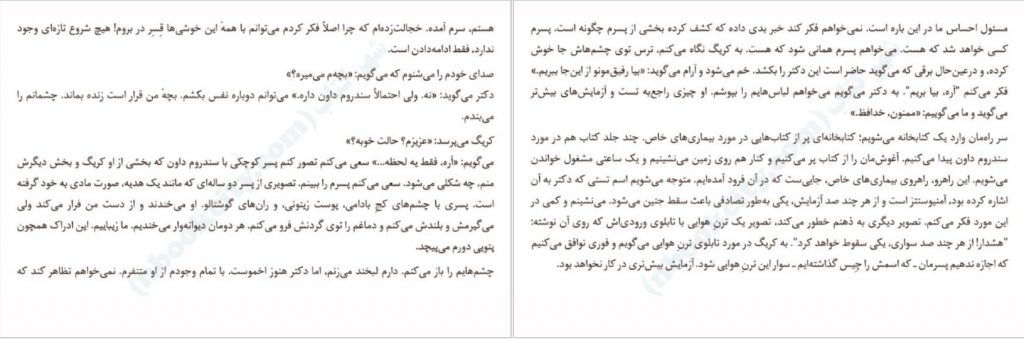 هستم، سرم آمده. خجالت‌زده‌ام که چرا اصلاً فکر کردم می‌توانم با همهٔ این خوشی‌ها قِسِر در بروم! هیچ شروع تازه‌ای وجود
ندارد، فقط ادامه‌دادن است.
صدای خودم را می‌شنوم که می‌گویم: «بچه‌م می‌میره؟»
دکتر می‌گوید: «نه. ولی احتمالاً سندروم داون داره.» می‌توانم دوباره نفس بکشم. بچهٔ من قرار است زنده بماند. چشمانم را
می‌بندم.
کریگ می‌پرسد: «عزیزم؟ حالت خوبه؟»
می‌گویم: «آره، فقط یه لحظه...» سعی می‌کنم تصور کنم پسر کوچکی با سندروم داون که بخشی از او کریگ و بخش دیگرش
منم، چه شکلی می‌شود. سعی می‌کنم پسرم را ببینم. تصویری از پسر دو ساله‌ای که مانند یک هدیه، صورت مادی به خود گرفته
است. پسری با چشم‌های کج بادامی، پوست زیتونی، و ران‌های گوشتالو. او می‌خندند و از دست من فرار می‌کند ولی
می‌گیرمش و بلندش می‌کنم و دماغم را توی گردنش فرو می‌کنم. هر دومان دیوانه‌وار می‌خندیم. ما زیباییم. این ادراک همچون
پتویی دورم می‌پیچد.
چشم‌هایم را باز می‌کنم. دارم لبخند می‌زنم، اما دکتر هنوز اخموست. با تمام وجودم از او متنفرم. نمی‌خواهم تظاهر کند که
مسئول احساس ما در این باره است. نمی‌خواهم فکر کند خبر بدی داده که کشف کرده بخشی از پسرم چگونه است. پسرم
کسی خواهد شد که هست. می‌خواهم پسرم همانی شود که هست. به کریگ نگاه می‌کنم، ترس توی چشم‌هاش جا خوش
کرده، و درعین‌حال برقی که می‌گوید حاضر است این دکتر را بکشد. خم می‌شود و آرام می‌گوید: «بیا رفیق‌مونو از این‌جا ببریم.»
فکر می‌کنم "آره، بیا بریم". به دکتر می‌گویم می‌خواهم لباس‌هایم را بپوشم. او چیزی راجع‌به تست و آزمایش‌های بیش‌تر
می‌گوید و ما می‌گوییم: «ممنون، خدافظ.»
سر راه‌مان وارد یک کتابخانه می‌شویم؛ کتابخانه‌ای پر از کتاب‌هایی در مورد بیماری‌های خاص. چند جلد کتاب هم در مورد
سندروم داون پیدا می‌کنیم. آغوش‌مان را از کتاب پر می‌کنیم و کنار هم روی زمین می‌نشینیم و یک ساعتی مشغول خواندن
می‌شویم. این راهرو، راهروی بیماری‌های خاص، جایی‌ست که در آن فرود آمده‌ایم. متوجه می‌شویم اسم تستی که دکتر به آن
اشاره کرده بود، آمنیوسنتز است و از هر چند صد آزمایش، یکی به‌طور تصادفی باعث سقط جنین می‌شود. می‌نشینم و کمی در
این مورد فکر می‌کنم. تصویر دیگری به ذهنم خطور می‌کند، تصویر یک ترن هوایی با تابلوی ورودی‌اش که روی آن نوشته:
"هشدار! از هر چند صد سواری، یکی سقوط خواهد کرد". به کریگ در مورد تابلوی ترن هوایی می‌گویم و فوری توافق می‌کنیم
که اجازه ندهیم پسرمان ـ که اسمش را چِیس گذاشته‌ایم ـ سوار این ترنِ هوایی شود. آزمایش بیش‌تری در کار نخواهد بود.